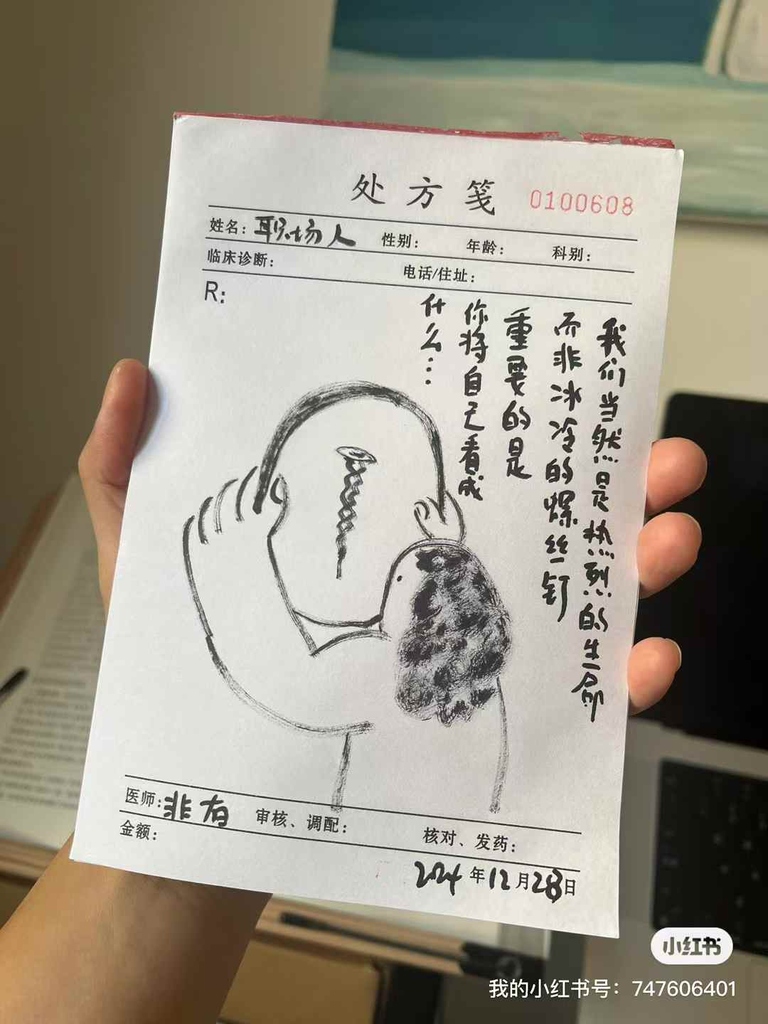 处方笺 0100608
姓名：职场人 性别： 年龄： 科别：
临床诊断： 电话/住址：
R：
我们当然是热烈的生命
而非冰冷的螺丝钉
重要的是
你将自己看成
什么…
医师：非有 审核、调配： 核对、发药：
金额：
2024年12月28日
小红书
我的小红书号：747606401